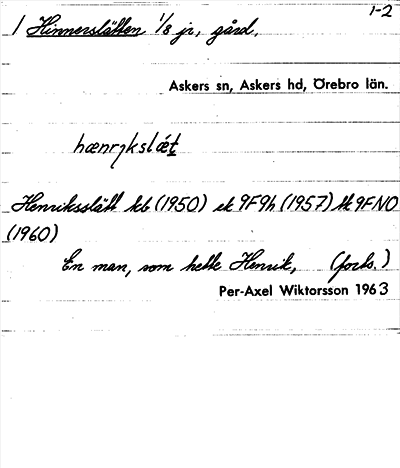 1-2
1 Hinnerslätten 1/8 jr, gård.
Askers sn, Askers hd, Örebro län.
hænrykslǽt
Henriksslätt kb (1950) ek 9F9h (1957) tk 9F NO
(1960)
En man, som hette Henrik, (forts.)
Per-Axel Wiktorsson 1963